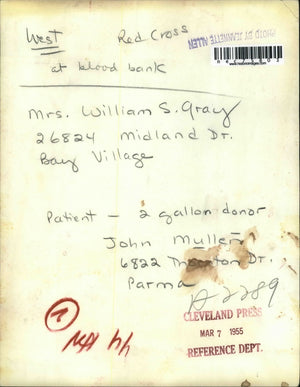 West
Red Cross
PHOTO BY JEANNETTE ALLEN
at blood bank
Mrs. William S. Gray
26824 Midland Dr.
Bay Village
Patient — 2 gallon donor
John Muller
6822 Dr.
Parma
A2289
CLEVELAND PRESS
MAR 7 1955
REFERENCE DEPT.